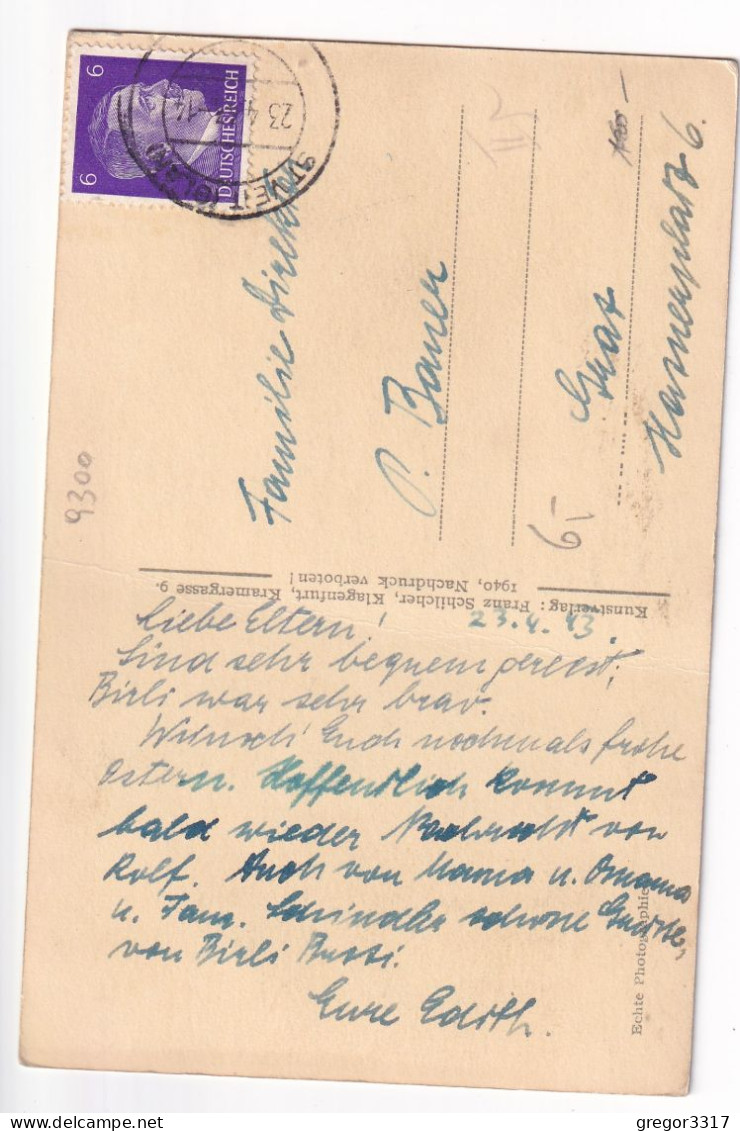 6
6
DEUTSCHES REICH
23.4.
-14
ST. VEIT (GLAN)
Familie Direktor
P. Bauer
Graz
Hamerplatz 6.
6,-
9300
Kunstverlag: Franz Schilcher, Klagenfurt, Kramergasse 9.
1940, Nachdruck verboten!
23.4.43.
Liebe Eltern!
Sind sehr bequem gereist,
Birli war sehr brav.
Wünsch' Euch nochmals frohe
Ostern. Hoffentlich kommt
bald wieder Nachricht von
Rolf. Auch von Mama u. Omama
u. Fam. Schindler schöne Grüße,
von Birli Bussi.
Eure Edith.
Echte Photographie
gregor3317